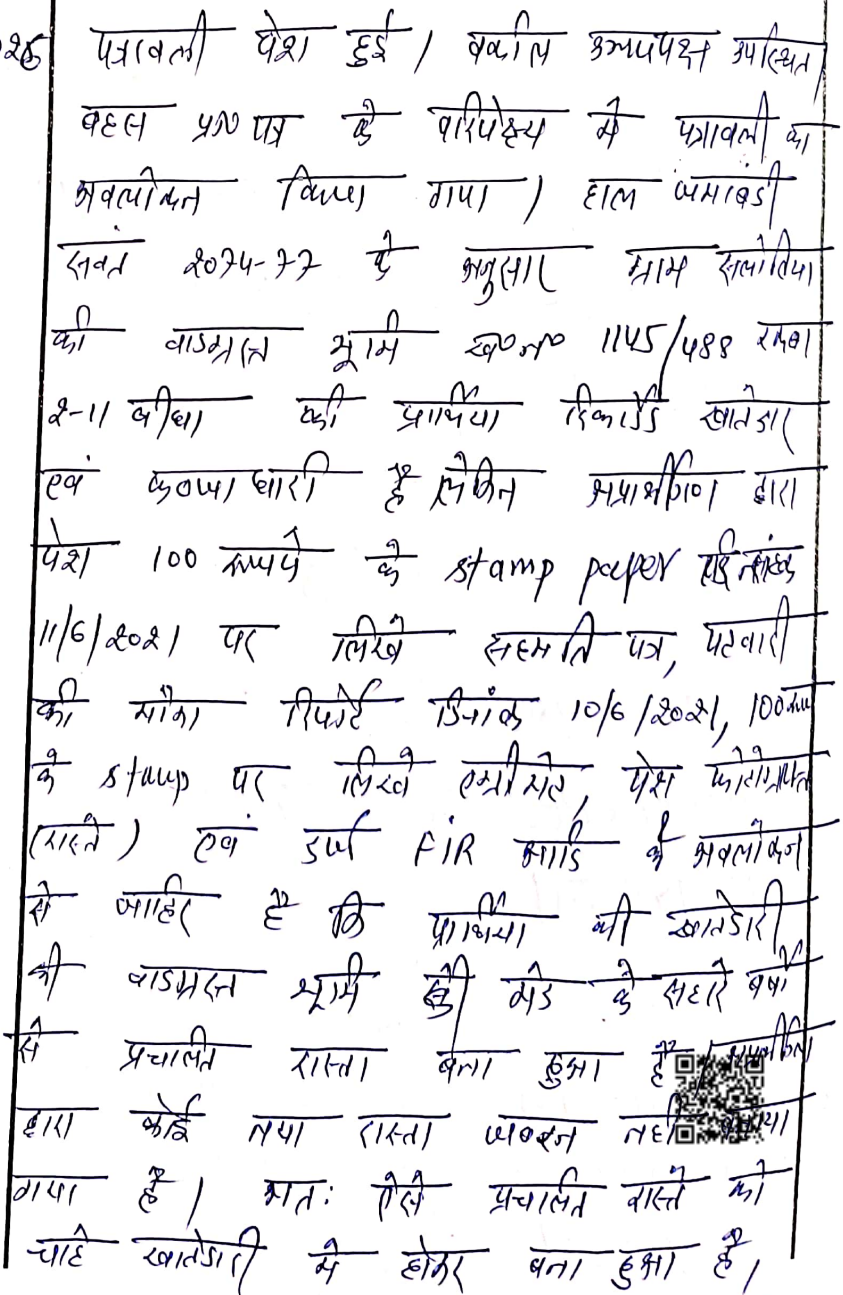 पत्रावली पेश हुई। वकील उभयपक्ष उपस्थित
बहस प्रा० पत्र के परिपेक्ष्य में पत्रावली का
अवलोकन किया गया। हाल जमाबंदी
संवत 2074-77 के अनुसार ग्राम सलोतिया
की वादग्रस्त भूमि ख०न० 1145/488 रकबा
2-11 बीघा की प्रार्थिया रिकार्डेड खातेदार
एवं कब्जाधारी है लेकिन अप्रार्थीगण द्वारा
पेश 100 रूपये के stamp paper
11/6/2021 पर लिखे सहमति पत्र, पटवारी
की मौका रिपोर्ट दिनांक 10/6/2021, 100 रूप
के stamp पर लिखे एग्रीमेंट, पेश फोटोग्राफ्स
(रास्ते) एवं दर्ज FIR आदि के अवलोकन
से जाहिर है कि प्रार्थिया की खातेदारी
की वादग्रस्त भूमि की मेड के सहारे बर्षो
से प्रचलित रास्ता बना हुआ है
द्वारा कोई नया रास्ता जबरन नही
गया है। अतः ऐसे प्रचलित रास्ते को
चाहे खातेदारी मे होकर बना हुआ है,